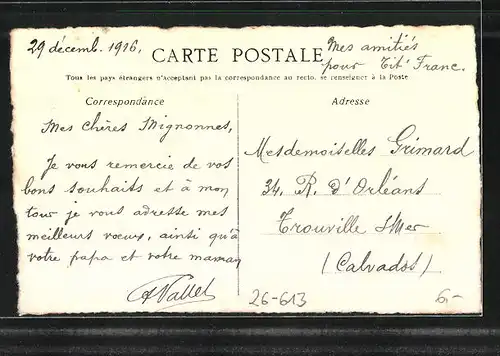 29 décemb. 1916.
CARTE POSTALE
Mes amitiés
pour Tit' Franc.
Tous les pays étrangers n'acceptant pas la correspondance au recto, se renseigner à la Poste
Correspondance
Mes chères Mignonnes,
Je vous remercie de vos
bons souhaits et à mon
tour je vous adresse mes
meilleurs vœux, ainsi qu'à
votre papa et votre maman
Vallet
Adresse
Mesdemoiselles Grimard
34. R. d'Orléans
Trouville s/Mer
(Calvados)
26-613
6.-